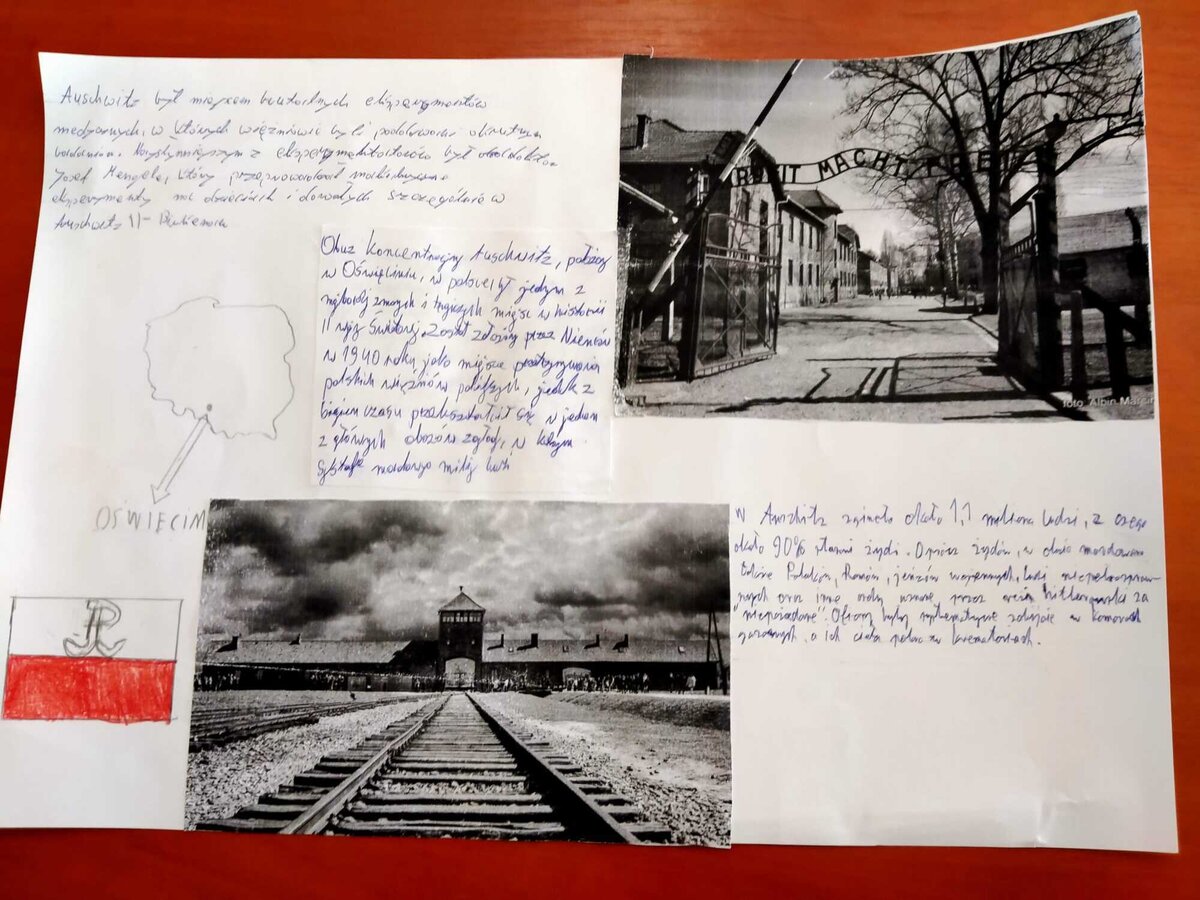 Auschwitz był miejscem brutalnych eksperymentów
medycznych, w których więźniowie byli poddawani okrutnym
badaniom. Najsłynniejszym z eksperymentatorów był doktor
Josef Mengele, który przeprowadzał
eksperymenty na dzieciach i dorosłych szczególnie w
Auschwitz II-
Obóz koncentracyjny Auschwitz, położony
w Oświęcimiu, w Polsce był jednym z
najbardziej znanych i tragicznych miejsc w historii
II wojny Światowej. Został założony przez Niemców
w 1940 roku, jako miejsce przetrzymywania
polskich więźniów politycznych, jednak z
biegiem czasu przekształcił się w jeden
z głównych obozów zagłady, w którym
mordowano ludzi
OŚWIĘCIM
ARBEIT MACHT FREI
foto. Albin Marcin
W zginęło około 1,1 miliona ludzi, z czego
około 90% żydzi. Oprócz żydów, w obozie mordowano
Polaków, Romów, jeńców wojennych, ludzi niepełnospraw-
nych oraz inne osoby uznane przez za
"niepożądane". Ofiary były systematycznie zabijane w komorach
gazowych, a ich ciała palono w krematoriach.